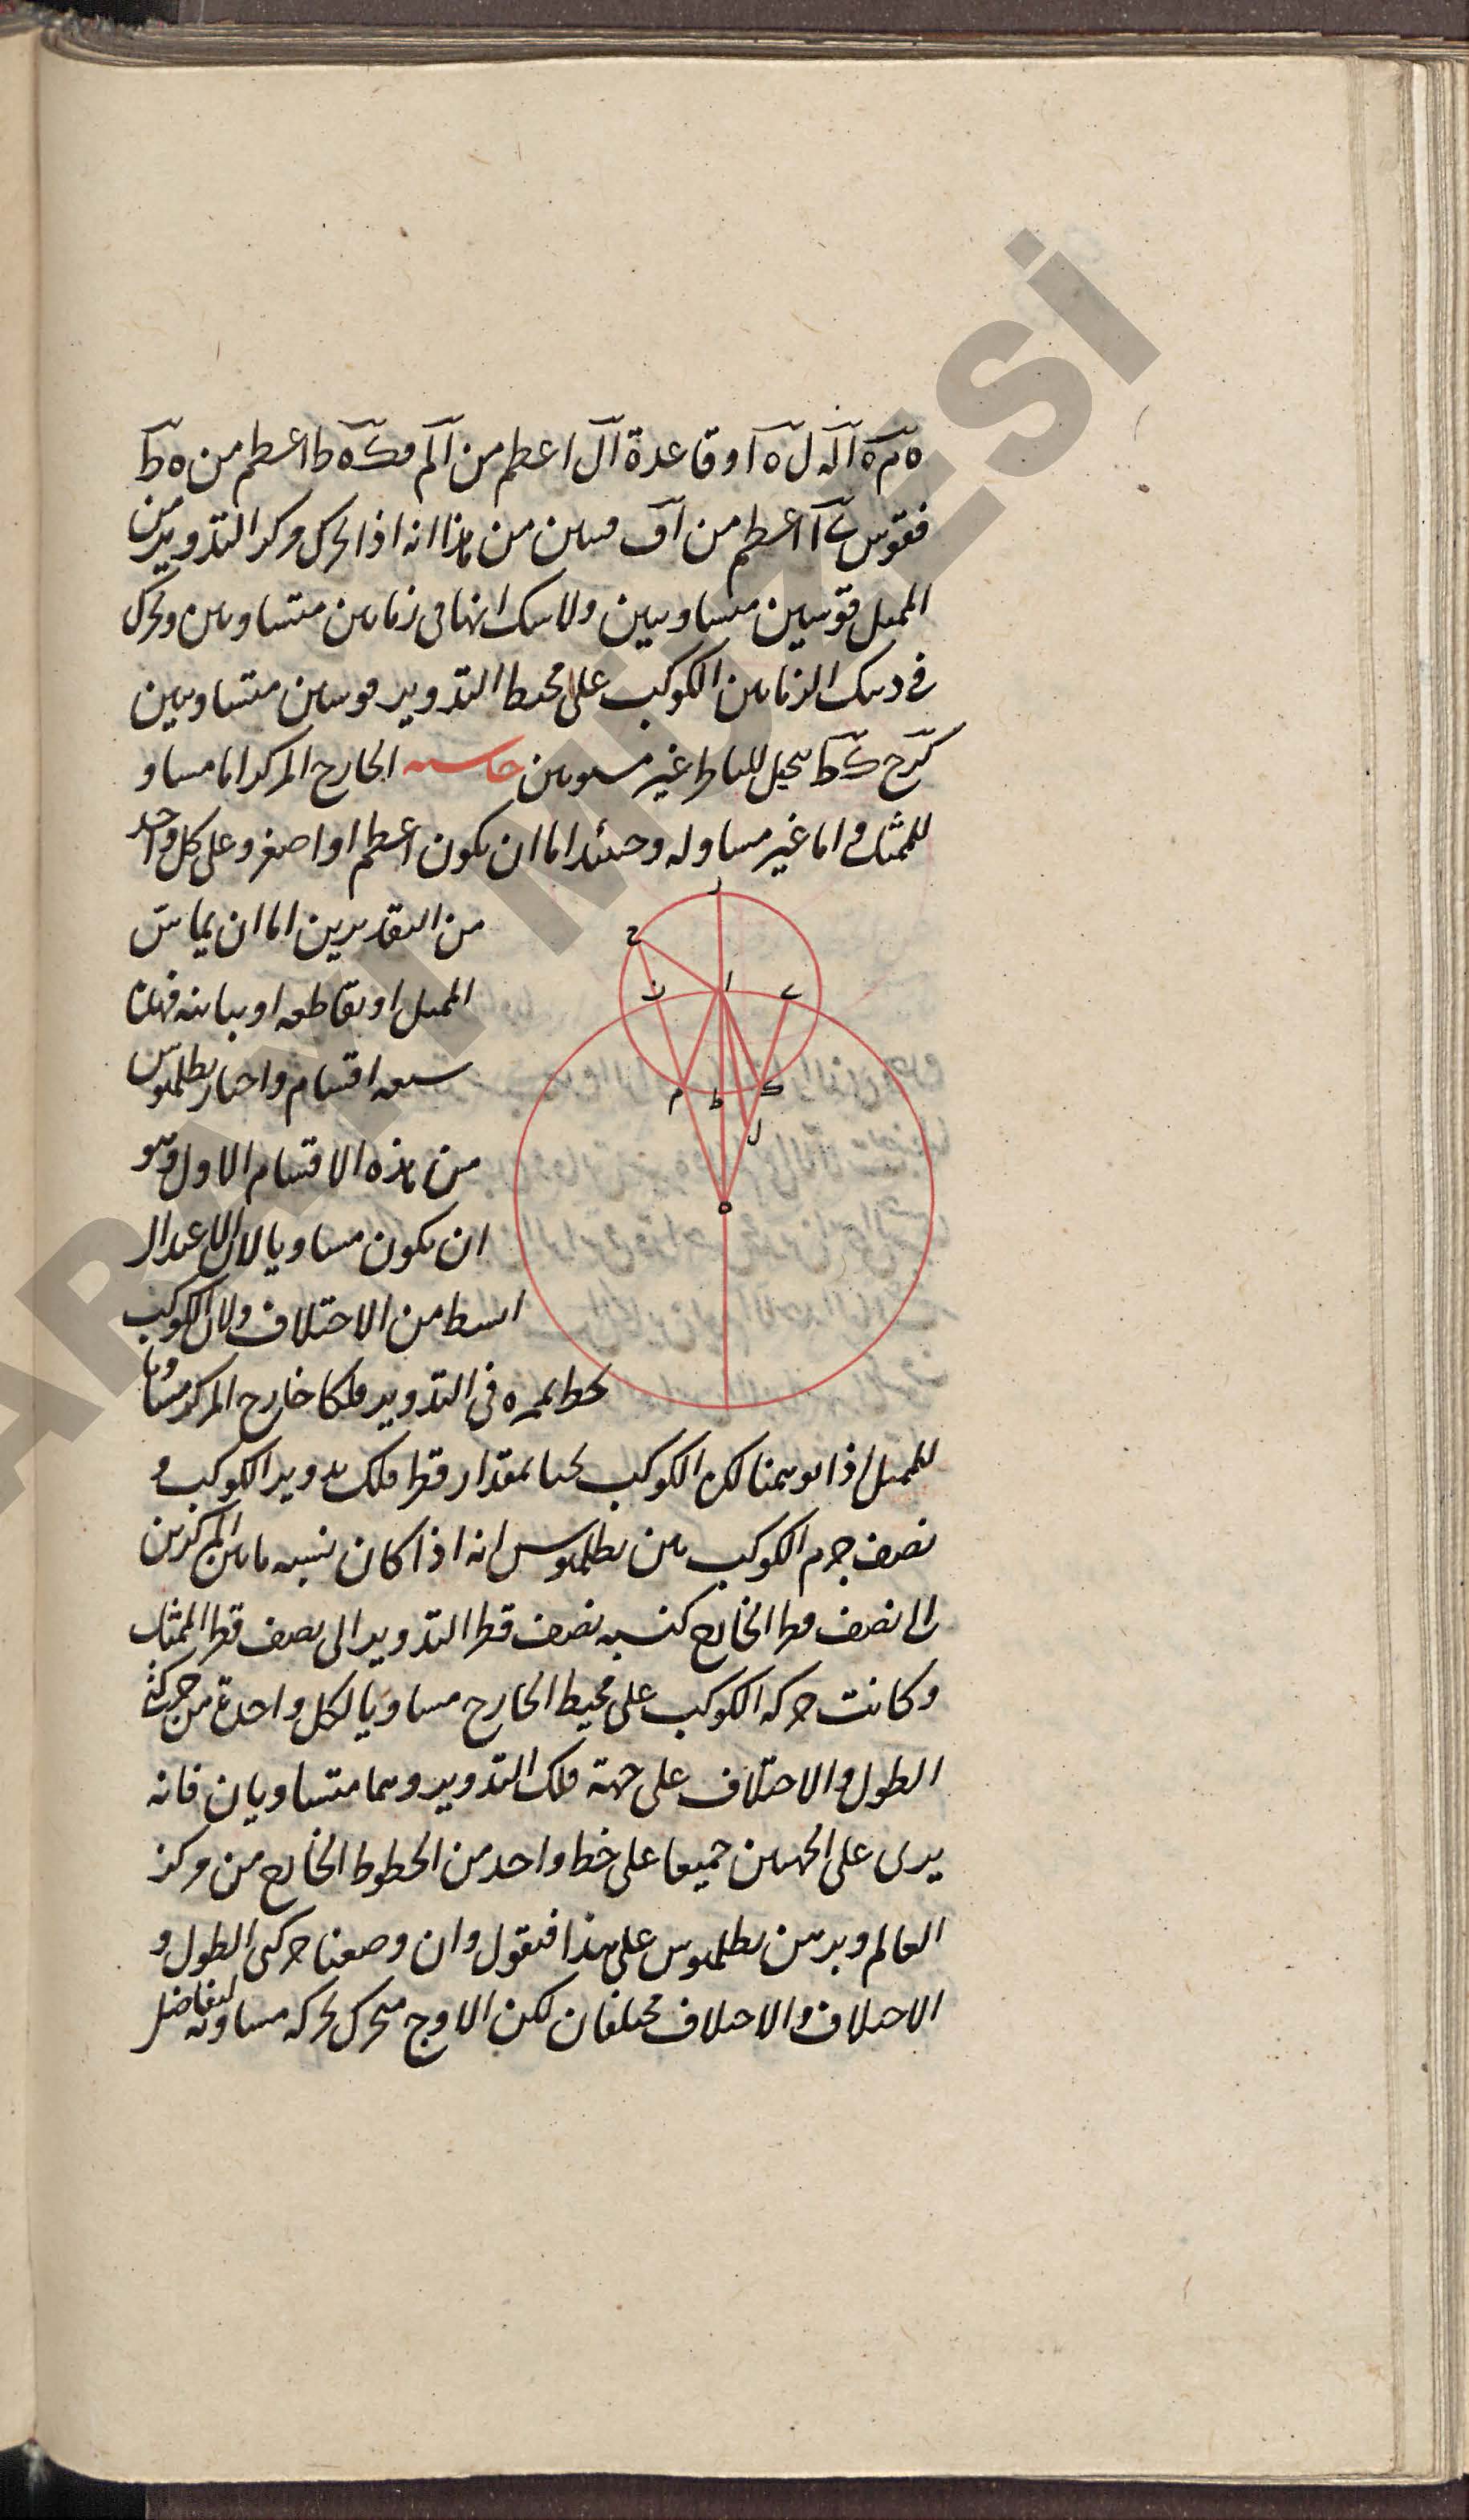 ه م ه ا ل ه ل ه ا وقاعدة ال اعطم من ام اعطم من ه ط
فقوس ا اعطم من ا ف فبين من هذا انه اذا تحرك مركز التدوير من
الممثل قوسين متساويين ولا شك انهما فى زمانين متساويين وتحرك
فى دينك الزمانين الكوكب على محيط التدوير قوسين متساويين
تخيل للناظر غير مستويين حاشيه الخارج المركز اما مساو
للممثل واما غير مساو له وحينئذ اما ان يكون اعظم او اصغر وعلى كل واحد
من التقديرين اما ان يماس
الممثل او يقاطعه او يباينه فهذه
سبعه اقسام واختار بطلميوس
من هذه الاقسام الاول وهو
ان يكون مساويا لان الاعتدال
ابسط من الاختلاف ولان الكوكب
يخط بمره فى التدوير فلكا خارج المركز مساويا
للممثل اذا توهمنا الكوكب بمقدار قطر فلك تدوير الكوكب و
نصف جرم الكوكب بين بطلميوس انه اذا كان نسبه ما بين المركزين
الى نصف قطر الخارج كنسبه نصف قطر التدوير الى نصف قطر الممثل
وكانت حركه الكوكب على محيط الخارج مساويا لكل واحدة من حركتى
الطول والاختلاف على جهة فلك التدوير وهما متساويان فانه
يرى على الجهتين جميعا على خط واحد من الخطوط الخارج من مركز
العالم وبرهن بطلميوس على هذا فنقول وان وضعنا حركتى الطول و
الاختلاف والاختلاف مختلفان لكن الاوج متحرك بحركه مساويه لتفاضل
ر
ح
ن ا ے
م ط ك
ل
ه
ARAMI MÜZESİ